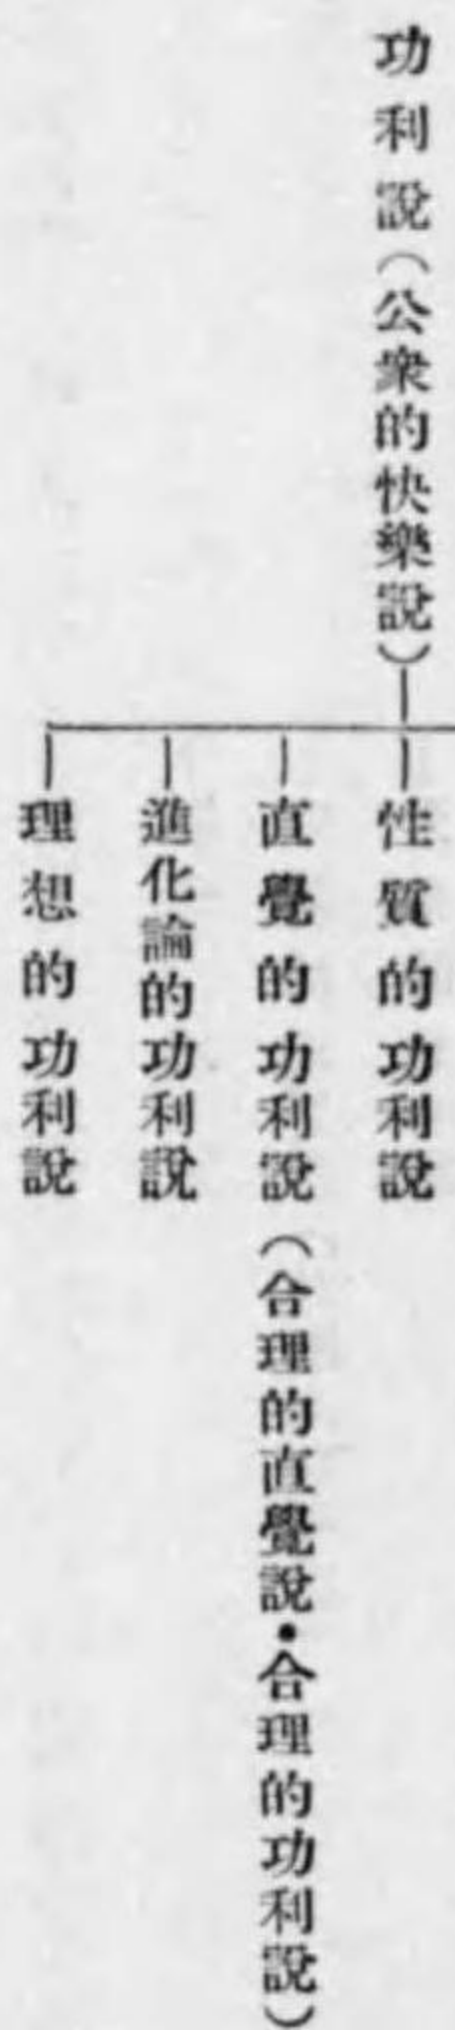 功利說(公衆的快樂說)
性質的功利說
直覺的功利說(合理的直覺說・合理的功利說)
進化論的功利說
理想的功利說